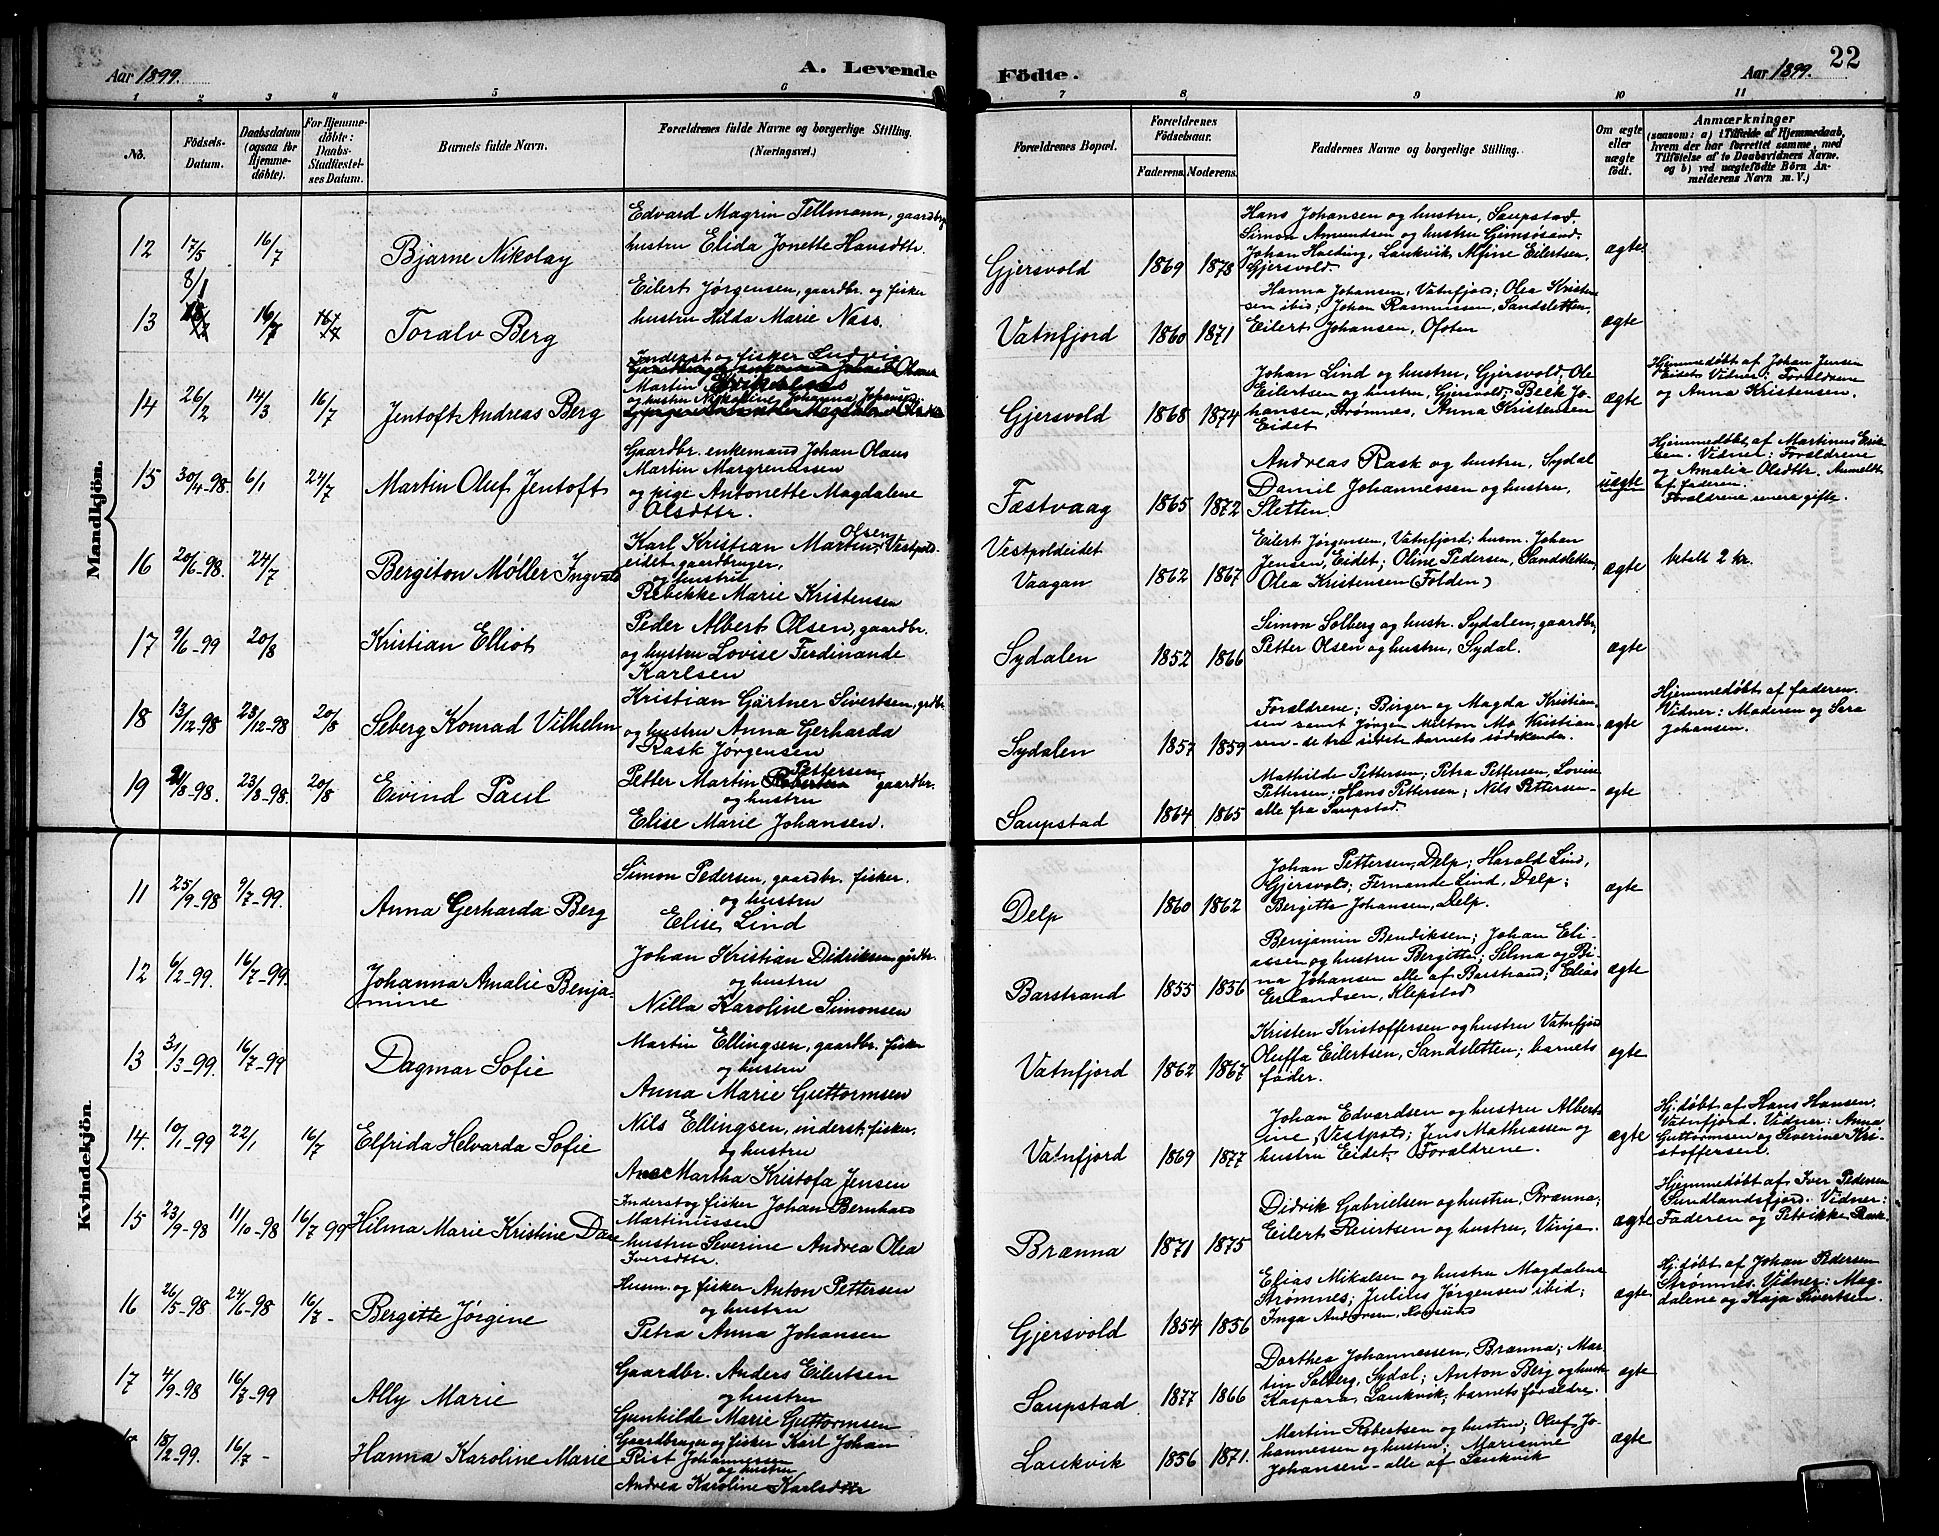 Aar 1899. A. Levende Födte. Aar 1899. 22
1 2 3 4 5 6 7 8 9 10 11
No.
Födsels-Datum.
Daabsdatum (ogsaa for Hjemmedöbte).
For Hjemmedöbte: Daabs-Stadfæstelses Datum.
Barnets fulde Navn.
Forældrenes fulde Navne og borgerlige Stilling. (Næringsvei.)
Forældrenes Bopæl.
Forældrenes Födselsaar.
Faderens. Moderens.
Faddernes Navne og borgerlige Stilling.
Om ægte eller uægte födt.
Anmærkninger
(saasom: a) i Tilfælde af Hjemmedaab,
hvem der har forrettet samme, med
Tilföielse af to Daabsvidners Navne.
og b) ved uægtefödte Börn An-
melderens Navn m. V.)
Mandkjön.
12 17/5 16/7 Bjarne Nikolay
Edvard Magrin Tellmann, gaardbr
hustru Elida Jonette Hansdttr.
Gjersvold 1869 1878
Hans Johansen og hustru, Saupstad.
Simon Amundsen og hustru Gimsøsand.
Johan Harding, Laukvik, Alfine Eilertsen,
Gjersvold.
ægte
13 8/1 16/7 Toralv Berg
Eilert Jørgensen, gaardbr. og fisker
hustru Hilda Marie Nass.
Vatnfjord 1860 1871
Hanna Johansen, Vatnfjord; Olea Kristen-
sen ibid; Johan Rasmussen, Sandsletten,
Eilert Johansen, Ofoten
ægte
14 26/2 14/3 16/7 Jentoft Andreas Berg
Inderst og fisker Ludvig
Martin
og hustru Nikoline Johanna Johansen
Gjersvold 1868 1874
Johan Lind og hustru, Gjersvold, Ole
Eilertsen og hustru, Gjersvold; Beck Jo-
hansen, Strømnes, Anna Kristensen
Eidet
ægte
Hjemmedøbt af Johan Jensen
Eidet. Vidner: Forældrene
og Anna Kristensen.
15 30/4-98. 6/1 24/7 Martin Oluf Jentoft
Gaardbr. enkemand Johan Olaus
Martin Margrenussen
og pige Antonette Magdalene
Olsdttr.
Fæstvaag 1865 1872
Andreas Rask og hustru, Sydal
Daniel Johannessen og hustru,
Sletten.
uægte
Hjemmedøbt af Martinus Erik-
sen. Vidner: Forældrene
og Amalia Olsdttr. Anmeldt
af faderen.
Forældrene senere gifte.
16 20/6-98. 24/7 Bergiton Møller Ingvald
Karl Kristian Martin Olsen, Vestpold-
eidet gaardbruger,
og hustru
Rebekke Marie Kristensen
Vestpoldeidet
Vaagan 1862 1867
Eilert Jørgensen, Vatnfjord; husm. Johan
Jensen, Eidet; Oline Pedersen, Sandsletten,
Olea Kristensen (Folden)
ægte
betalt 2 kr.
17 9/6-99 20/8 Kristian Elliot
Peder Albert Olsen, gaardbr.
og hustru Lovise Ferdinande
Karlsen
Sydalen 1852 1866
Simon Solberg og hustr. Sydalen, gaardbr.
Petter Olsen og hustru, Sydal.
ægte
18 13/12-98 28/12-98 20/8 Seberg Konrad Vilhelm
Kristian Gärtner Sivertsen, grdbr
og hustru Anna Gerharda
Rask Jørgensen
Sydalen 1857 1859
Forældrene; Birger og Magda Kristian-
sen samt Jørgen Milton Mo Kristian-
sen - de tre sidste barnets sødskende.
ægte
Hjemmedøbt af faderen.
Vidner: Moderen og Sara
Johansen.
19 21/8-98. 23/8-98. 20/8 Eivind Paul
Petter Martin Pettersen, gaardbr.
og hustru
Elise Marie Johansen.
Saupstad 1864 1865
Mathilde Pettersen; Petra Pettersen, Lovise
Pettersen; Hans Pettersen; Nils Pettersen-
alle fra Saupstad.
ægte
Kvindekjön.
11 25/9-98 9/7-99. Anna Gerharda Berg
Simon Pedersen, gaardbr. fisker.
og hustru
Elise Lind
Delp 1860 1862
Johan Pettersen, Delp; Harald Lind,
Gjersvold; Fernande Lind, Delp;
Bergitte Johansen, Delp.
ægte
12 6/2-99. 16/7-99. Johanna Amalie Benja-
mine
Johan Kristian Didriksen gårdbr.
og hustru
Nilla Karoline Simonsen
Barstrand 1855 1856
Benjamin Bendiksen; Johan Eli-
assen og hustru Bergitte; Selma og Bi-
na Johansen alle af Barstrand; Elias
Erlandsen, Klepstad
ægte
13 31/3-99. 16/7-99 Dagmar Sofie
Martin Ellingsen, gaardbr. fisker
og hustru
Anna Marie Guttormsen
Vatnfjord 1862 1867
Kristen Kristoffersen og hustru Vatnfjord
Oluffa Eilertsen, Sandsletten; barnets
fader.
ægte
14. 10/1-99 22/1 16/7 Elfrida Helvarda Sofie
Nils Ellingsen, inderst, fisker.
og hustru
Ane Martha Kristofa Jensen
Vatnfjord 1869 1877
Johan Edvardsen og hustru Albert-
ine, Vestpold; Jens Mathiassen og
hustru Eidet; Forældrene.
ægte
Hj. døbt af Hans Hansen,
Vatnfjord. Vidner: Anna
Guttormsen og Severine Kri-
stoffersen.
15 23/9-98 11/10-98 16/7 99 Hilma Marie Kristine Dane
Inderst og fisker Johan Bernhard
Martinussen
hustru Severine Andrea Olea
Iversdttr.
Brænna 1871 1875
Didrik Gabrielsen og hustru, Brænna,
Eilert Reiertsen og hustru, Vinja.
ægte
Hjemmedøbt af Iver Pedersen
Sundlandsfjord. Vidner:
Faderen og Petrikke Rask.
16 26/5-98 24/6-98 16/7- Bergitte Jørgine
Husm. og fisker Anton Pettersen
og hustru
Petra Anna Johansen
Gjersvold 1854 1856
Elias Mikalsen og hustru Magdalene
Strømnes; Julius Jørgensen ibid;
Inga Andersen,
ægte
Hj. døbt af Johan Pedersen
Strømnes. Vidner: Mag-
dalene og Kaja Sivertsen.
17 4/9-98 16/7-99 Ally Marie
Gaardbr. Anders Eilertsen
og hustru
Gunhilde Marie Guttormsen
Saupstad 1877 1866
Dorthea Johannessen, Brænna; Mar-
tin Solberg, Sydal; Anton Berg og hustr.
Kaspara, Laukvik; barnets forældre.
ægte
18/2-99. 16/7- Hanna Karoline Marie
Gaardbruger og fisker Karl Johan
Rist Johannessen
og hustru
Andrea Karoline Karlsdttr
Laukvik 1856 1871.
Martin Robertsen og hustru; Oluf Jo-
hannessen og hustru; Marianne
Johansen - alle af Laukvik
ægte